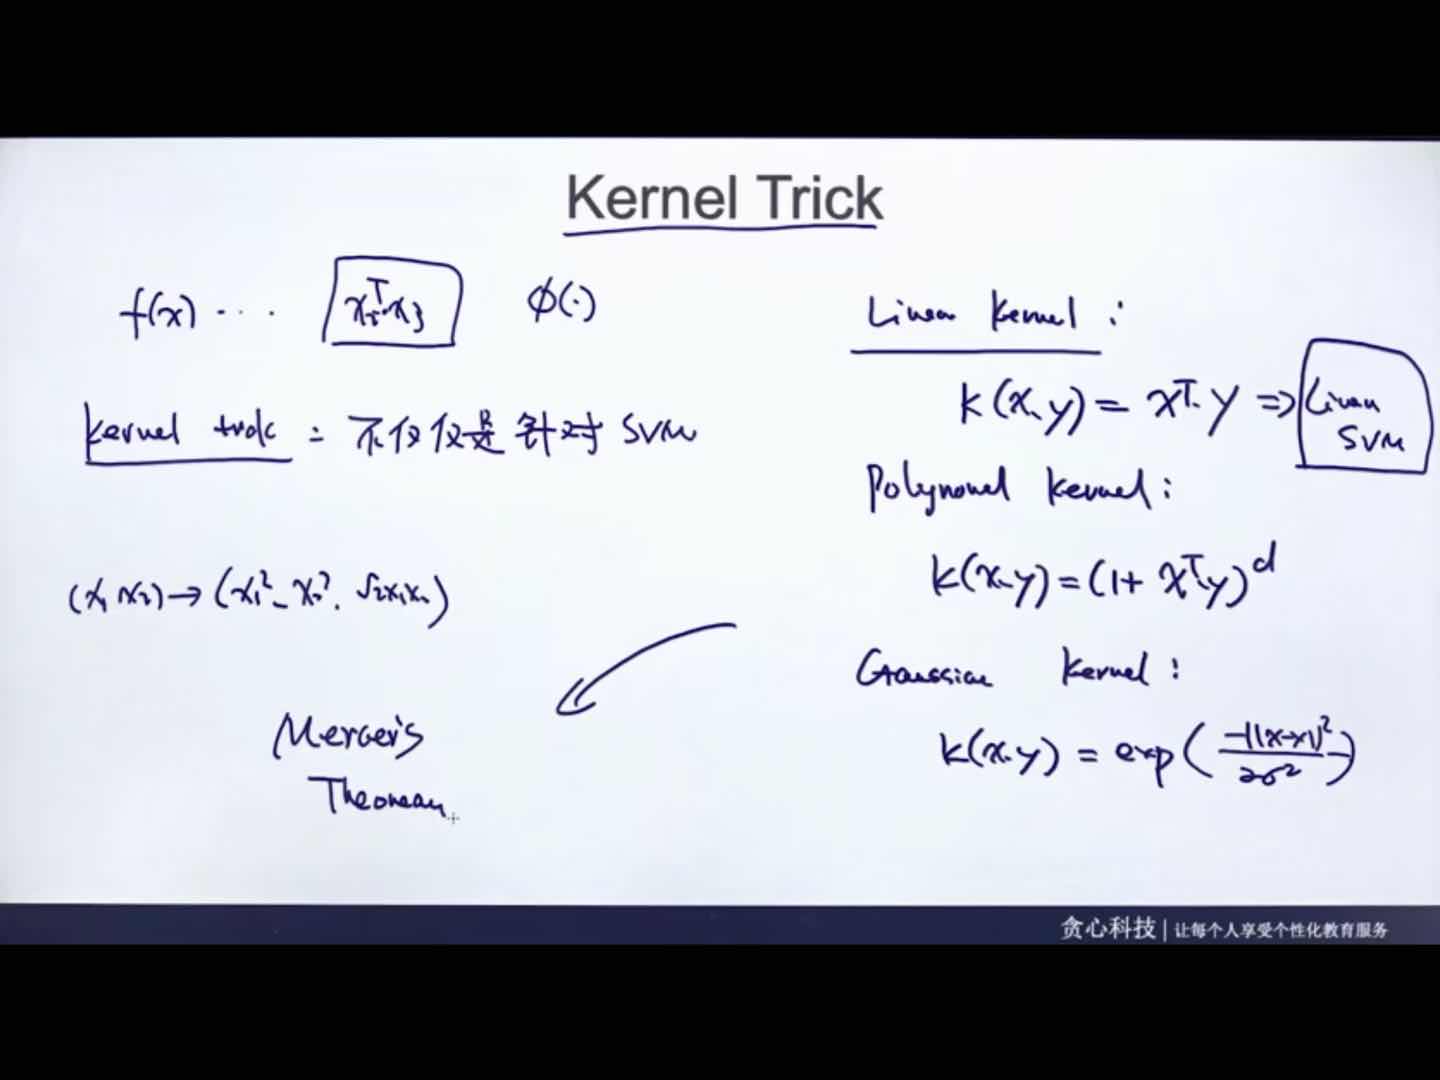 Kernel Trick
f(x) ... xᵢᵀ·xⱼ φ(·)
kernel trick : 不仅仅是针对 SVM
(x₁ x₂) → (x₁², x₂², √2x₁x₂)
Mercer's
Theorem
Linear Kernel :
k(x, y) = xᵀ·y ⇒ Linear
SVM
Polynomial Kernel :
k(x, y) = (1 + xᵀy)ᵈ
Gaussian Kernel :
k(x, y) = exp(-||x-y||² / 2σ²)
贪心科技 | 让每个人享受个性化教育服务